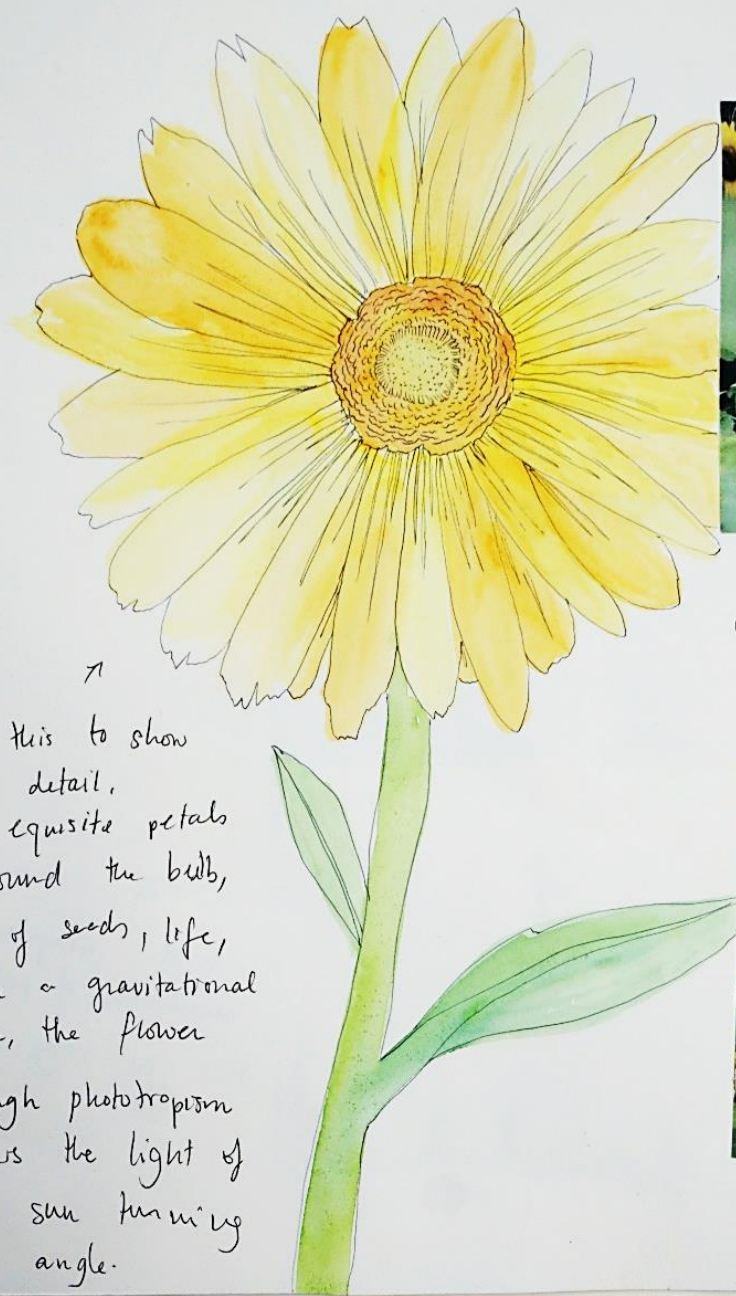 this to show
detail.
equisite petals
ound the bulb,
of seeds, life,
a gravitational
, the flower
gh phototropism
the light of
sun turning
angle.